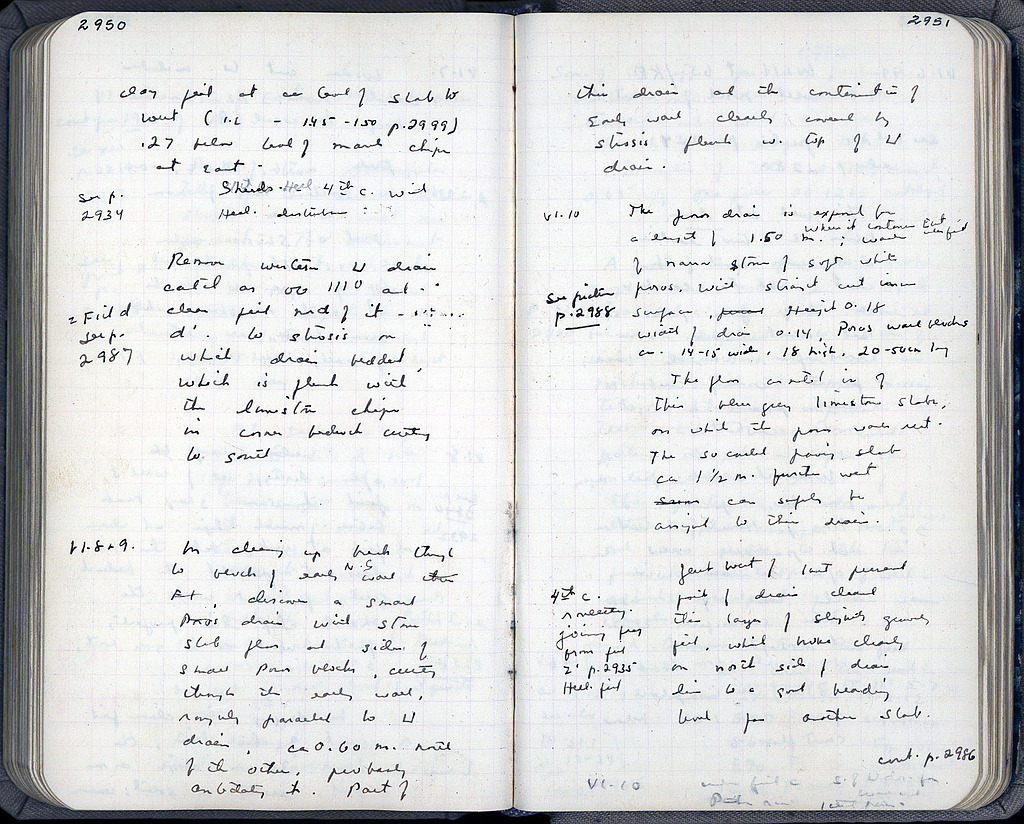 2950
clay fill at ca level of slab to
west (i.e. - 1.45 - 1.50 p. 2999)
.27 below level of marble chips
at East.
Sherds. Hell 4th c. with
Hell. disturbance
See p.
2934
Remove western W drain
catch as 00 1110 and
clear fill north of it
= Fill d
See p.
2987
d'. to stosis on
which drain bedded,
which is flush with
the limestone chips
in corner bedrock cutting
to south
V1.8+9.
In cleaning up break through
to block of early N.S wall
At, discover a small
Poros drain with stone
slab floor and sides of
small Poros blocks, cutting
through the early wall,
roughly parallel to W
drain, ca 0.60 m. north
of the other, probably
antedating it. Part of
2951
this drain at the continuation of
Early wall clearly covered by
stosis flush w. top of W
drain.
V1.10
The poros drain is exposed for
a length of 1.50 m.; walls
when it continues East
of narrow stone of soft white
poros. with straight cut inner
See picture
p. 2988
surface, Height 0.18
width of drain 0.14, Poros wall blocks
ca. 14-15 wide, 18 high, 20-50cm lg
The floor consisted of
thin blue grey limestone slabs,
on which the poros walls rest.
The so called paving slab
ca 1 1/2 m. further west
can safely be
assigned to this drain.
Just west of last preserved
4th c.
joining frag
from fill
2' p. 2935
Hell. fill
part of drain cleared
thin layer of slightly greenish
fill, which more clearly
on north side of drain
down to a good bedding
level for another slab.
cont. p. 2986
V1.10